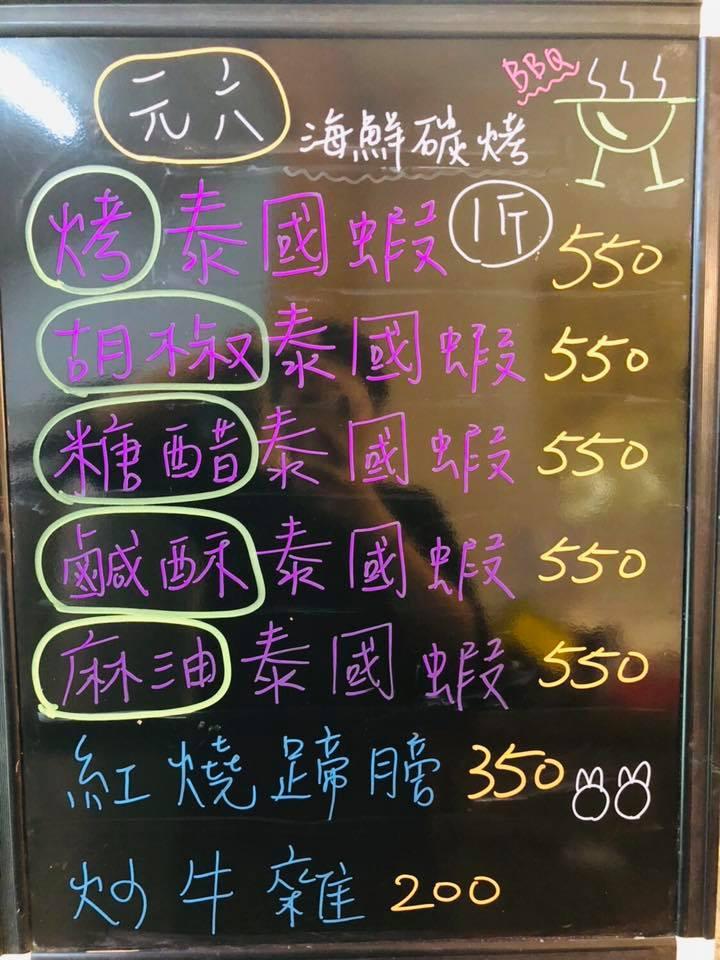 BBQ
元六 海鮮碳烤
烤泰國蝦 1斤 550
胡椒泰國蝦 550
糖醋泰國蝦 550
鹹酥泰國蝦 550
麻油泰國蝦 550
紅燒蹄膀 350
炒牛雜 200